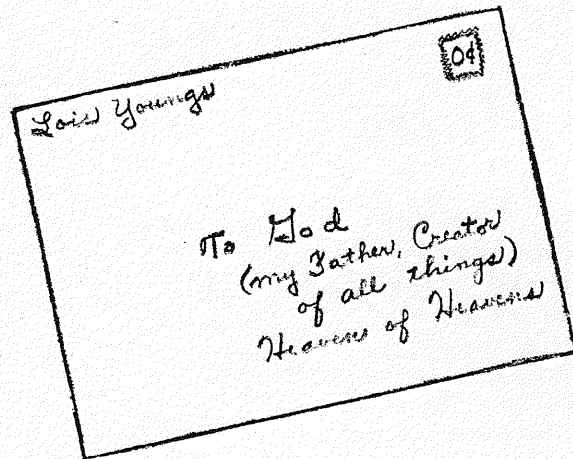 Lois Youngs
0¢
To God
(my Father, Creator
of all things)
Heavens of Heavens